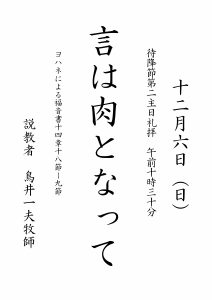 十二月六日（日）
待降節第二主日礼拝　午前十時三十分
言は肉となって
ヨハネによる福音書十四章十八節ー九節
説教者　鳥井一夫牧師